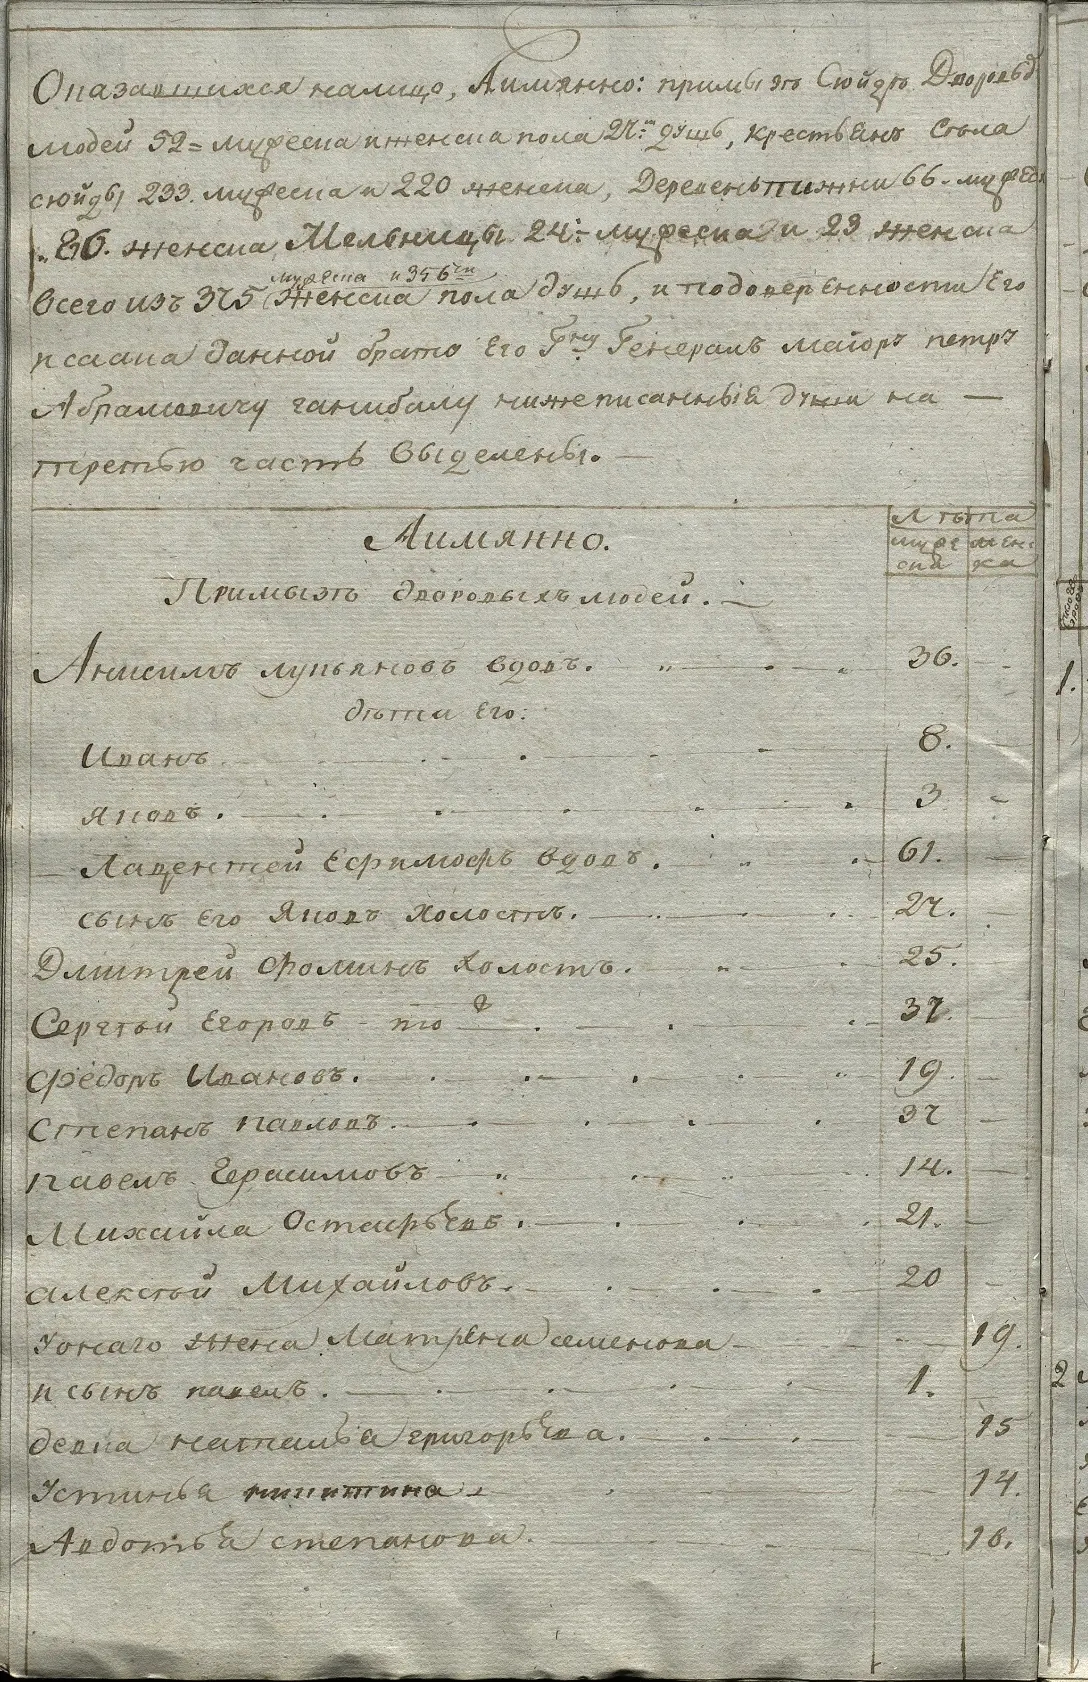 Оказавшихся налицо, Аимянно: примызѣ Сюйдѣ Дворовых
людей 52= мужеска иженска пола 27.ⁿ душъ, крестьянъ Села
сюйды 233. мужеска и 220 женска, Деревень 66. мужеск
„ 86. женска, Мельницы 24: мужеска и 23 женска
мужеска и 356ти
всего изъ 375 женска пола душъ, и подоверенности Его
данной брату Его Гну Генералъ маіору петру
Абрамовичу ганибалу нижеписанныя души на —
третью часть выделены. —
Лѣта
Аимянно.
муже
ска
жен
ка
Примызѣ дворовыхъ людей. —
Анисимъ лукьяновъ вдовъ. 36.
дѣти Его:
Иванъ 8.
яковъ. 3
Лаврентей Ефимофъ вдовъ. 61.
сынъ Его Яковъ холостъ. 27.
Дмитрей Фоминъ холостъ. 25.
Сергѣй Егоровъ - то ж 37.
Федоръ Ивановъ. 19.
Степанъ павловъ. 37
павелъ Герасимовъ 14.
Михайла Остафьевъ. 21.
алексѣй Михайловъ. 20
Уонаго жена Матрена семенова 19.
и сынъ павелъ. 1.
девка наталья григорьева. 15
Устинья никитина 14.
Авдотья степанова. 16.
1.
2